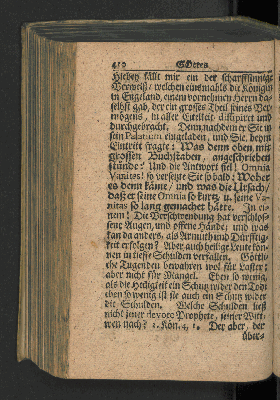 410 GOttes
Hiebey fällt mir ein der scharffsinnige
Verweiß / welchen einsmahls die Königin
in Engeland, einem vornehmen Herrn da-
selbst gab, der ein grosses Theil seines Ver-
mögens, in aller Eitelkeit dissipiret und
durchgebracht. Denn, nachdem er Sie in
sein Palatium eingeladen, und Sie, beym
Eintritt fragte: Was denn oben mit
grossen Buchstaben, angeschrieben
stünde? Und die Antwort fiel: Omnia
Vanitas! so versetzte Sie so bald: Woher
es denn käme / und was die Ursach/
daß er seine Omnia so kurtz, u. seine Va-
nitas so lang gemachet hätte. In ei-
nem! Die Verschwendung hat verschlos-
sene Augen, und offene Hände; und was
kan da anders, als Armuth und Dürfftig-
keit erfolgen? Aber auch heilige Leute kön-
nen in tieffe Schulden verfallen. Göttli-
che Tugenden bewahren wol für Laster;
aber nicht für Mangel. Eben so wenig,
als die Heiligkeit ein Schutz wider den Tod:
eben so wenig ist sie auch ein Schutz wider
die Schulden. Welche Schulden ließ
nicht jener devote Prophete, seiner Wit-
wen nach? 2. Kön. 4, 1. Der aber, der
über-